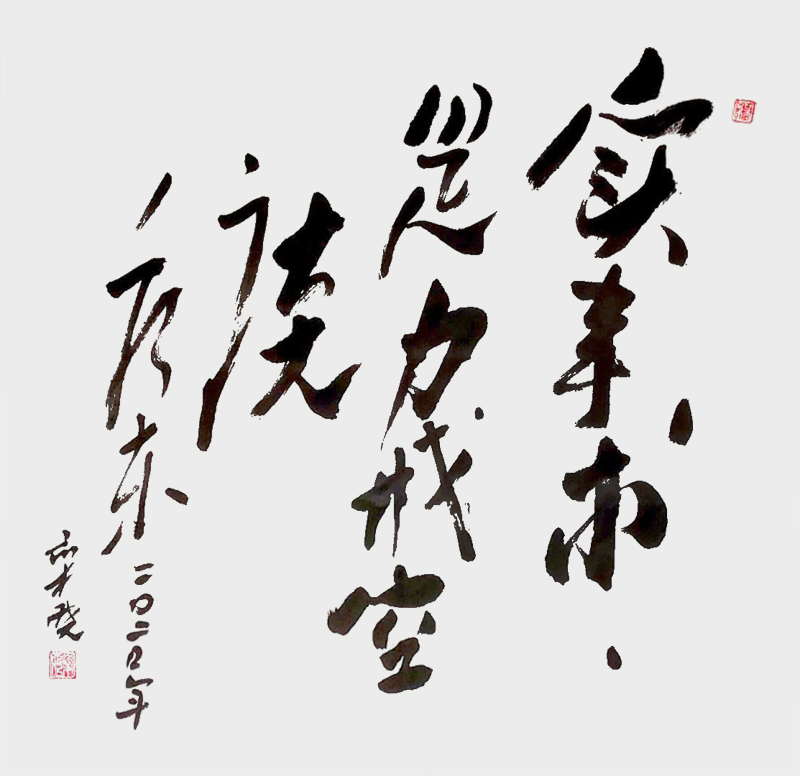 实事求
是力戒空
谈
二〇二〇年